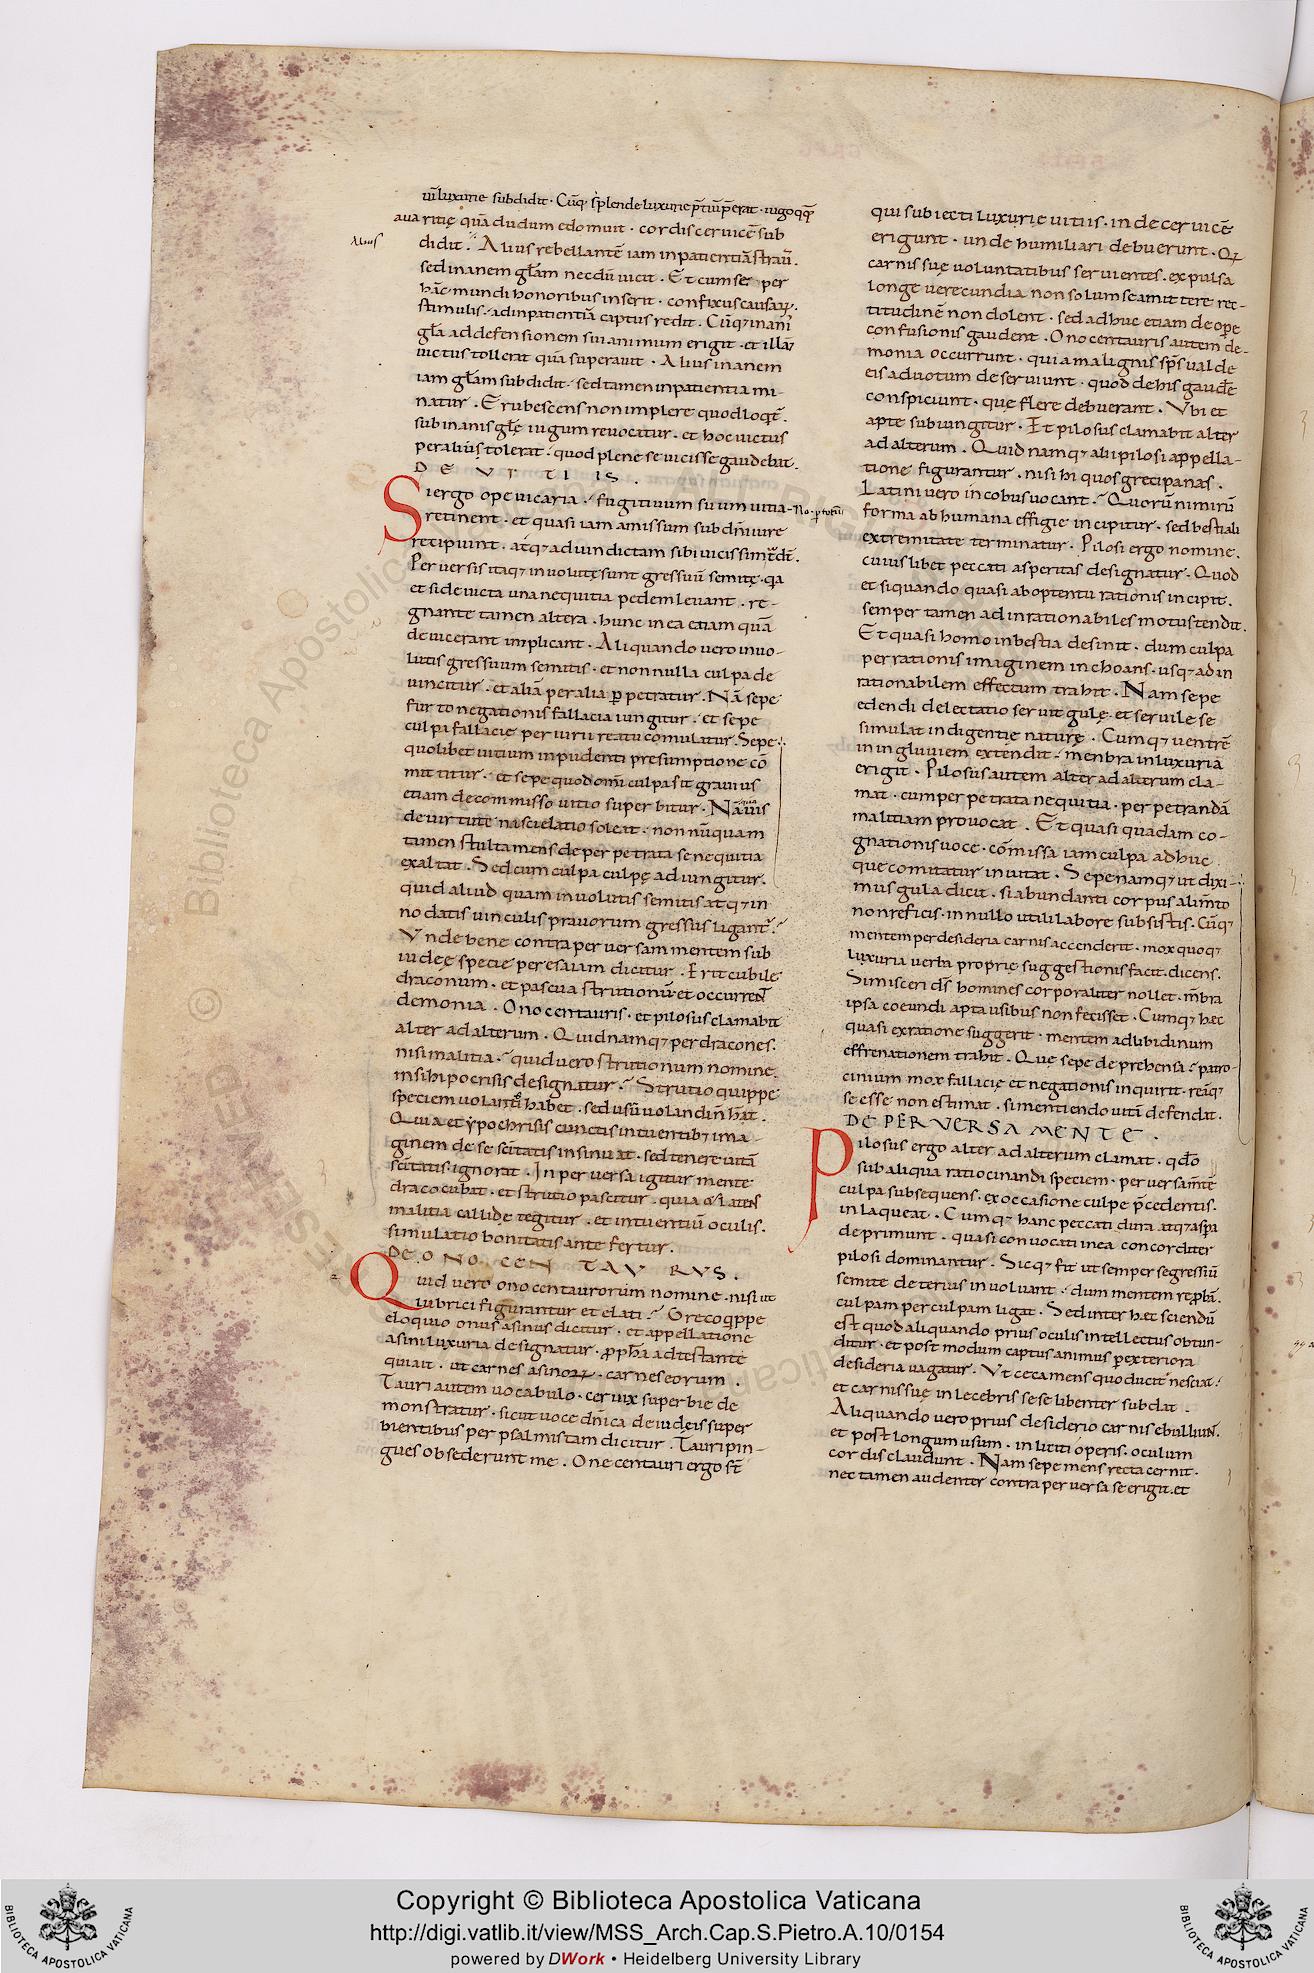 uił luxurie subdidit · Cūq; splende luxurie p̄tiū p̄erat · iugo qq̄
auaritię quā dudum edomuit · cordis ceruicē sub
Abus
didit · Alius rebellantē iam inpatientiā strauͥ ·
sed inanem głam necdū uicit · Et cum se per
hāc mundi honoribus inserit · confixus causaꝝ
stimulis · ad inpatientiā captus redit · Cūq; inani
gła ad defensionem sui animum erigit · et illā
uictus tollerat quā superauit · Alius inanem
iam głam subdidit · sed tamen inpatientia mi-
natur · Erubescens non implere quod loqt̄ ·
sub inanis głę iugum reuocatur · et hoc uictus
per aliūs tolerat · quod plene se uicisse gaudebat ·
DE VITIIS ·
Si ergo ope uicaria · fugitiuum suum uitia
retinent · et quasi iam amissum sub dn̄i iure
recipiunt · atq; ad uindictam sibi uicissim t̄dt̄ ·
Peruersis itaq; inuolutę sunt gressuū semitę · qa
et si deuicta una nequitia pedem leuant · re-
gnante tamen altera · hunc in ea etiam quā
deuicerant implicant · Aliquando uero inuo-
lutis gressuum semitis · et non nulla culpa de
uincitur · et aliā per alia ꝑpetratur · Nā sepe
furto negationis fallacia iungitur · et sepe
culpa fallacię periurii reatu comulatur · Sepe
quolibet uitium inpudenti presumptione cō
mittitur · et sepe quod om̄i culpa sit grauius
etiam de commisso uitio superbitur · Nā uis
de uirtute nasci elatio soleat · non nūquam
tamen stulta mens de perpetrata se nequitia
exaltat · Sed cum culpa culpę adiungitur ·
quid aliud quam inuolutis semitis atq; in
nodatis uinculis prauorum gressus ligantͬ ·
Vnde bene contra peruersam mentem sub
iudęę specie per esaiam dicitur · Erit cubile
draconum · et pascua strutionū et occurrent
demonia · Onocentauris · et pilosus clamabit
alter ad alterum · Quid namq; per dracones ·
nisi malitia · quid uero strutionum nomine ·
nisi hipocrisis designatur · Strutio quippe
speciem uolandi habet · sed usū uolandi n̄ hāt ·
Quia et ypochrisis cunctis intuentib; ima-
ginem de se scītatis insinuat · sed tenere uitā
scītatis ignorat · In peruersa igitur mente
draco cubat · et strutio pascitur · quia et latens
malitia callide tegitur · et intuentiū oculis ·
simulatio bonitatis antefertur ·
DE ONOCENTAVRVS ·
Quid uero onocentaurorum nomine · nisi ut
lubrici figurantur et elati · Greco qppe
eloquio onus asinus dicitur · et appellatione
asini luxuria designatur · ꝓpha adtestante
qui ait · ut carnes asinoꝝ · carnes eorum ·
Tauri autem uocabulo · ceruix superbie de
monstratur · sicut uoce dn̄ica de iudęis super
bientibus per psalmistam dicitur · Tauri pin-
gues obsederunt me · Onecentauri ergo st̄
qui subiecti luxurię uitiis · inde ceruicē
erigunt · unde humiliari debuerunt · Qͥ
carnis suę uoluntatibus seruientes · expulsa
longe uerecundia non solum se amittere rec-
titudinē non dolent · sed adhuc etiam de ope
confusionis gaudent · Onocentauris autem de-
monia occurrunt · quia maligni sp̄s ualde
eis ad uotum deseruiunt · quod de his gaudē
conspiciunt · quę flere debuerant · Vbi et
apte subiungitur · Et pilosus clamabit alter
ad alterum · Quid namq; alii pilosi appella-
tione figurantur · nisi hi quos greci panas ·
Latini uero incobus uocant · Quorū nimirū
forma ab humana effigie incipitur · sed bestiali
extremitate terminatur · Pilosi ergo nomine ·
cuius libet peccati asperitas designatur · Quod
et si quando quasi ab optentu rationis incipit ·
semper tamen ad inrationabiles motus tendit ·
Et quasi homo in bestia desinit · dum culpa
per rationis imaginem inchoans · usq; ad in
rationabilem effectum trahit · Nam sepe
edendi delectatio seruit gulę · et seruile se
simulat indigentię naturę · Cumq; uentrē
in ingluuiem extendit · menbra in luxuria
erigit · Pilosus autem alter ad alterum cla-
mat · cum perpetrata nequitia · per petrandā
malitiam prouocat · Et quasi quadam co-
gnationis uoce · cōmissa iam culpa adhuc
que comitatur inuitat · Sepe namq; ut dixi-
mus gula dicit · si abundanti corpus alimto
non reficis · in nullo utili labore subsistis · Cūq;
mentem per desideria carnis accenderit · mox quoq;
luxuria uerba proprię suggestionis facit · dicens ·
Si misceri ds̄ homines corporaliter nollet · m̄bra
ipsa coeundi apta usibus non fecisset · Cumq; hęc
quasi ex ratione suggerit · mentem ad libidinum
effrenationem trahit · Quę sepe deprehensa · patro-
cinium mox fallacię et negationis inquirit · reūq;
se esse non estimat · si mentiendo uitā defendat ·
DE PERVERSA MENTE ·
Pilosus ergo alter ad alterum clamat · qd̄o
sub aliqua ratiocinandi speciem · peruersā m̄tē
culpa subsequens · ex occasione culpe p̄cedentis ·
inlaqueat · Cumq; hanc peccati dura atq; aspa
deprimunt · quasi conuocati in ea concorditer
pilosi dominantur · Sicq; fit ut semper se gressiū
semite deterius inuoluant · dum mentem reꝓbā ·
culpam per culpam ligat · Sed inter hęc sciendū
est quod aliquando prius oculis intellectus obtun-
ditur · et post modum captus animus ꝑ exteriora
desideria uagatur · Vt ceca mens quo ducit͛ nesciat ·
et carnis suę inlecebris sese libenter subdat ·
Aliquando uero prius desiderio carnis ebulliun̄ ·
et post longum usum · inliciti operis · oculum
cordis claudunt · Nam sepe mens recta cernit ·
nec tamen audenter contra peruersa se erigit · et
Copyright © Biblioteca Apostolica Vaticana
http://digi.vatlib.it/view/MSS_Arch.Cap.S.Pietro.A.10/0154
powered by DWork • Heidelberg University Library